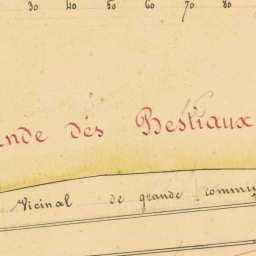 30 40 50 60 70 80
ande des Bestiaux
Vicinal de grande commu